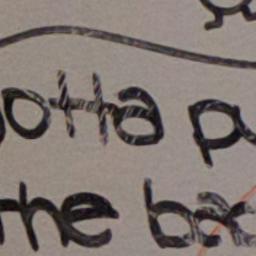 otta p
the ba